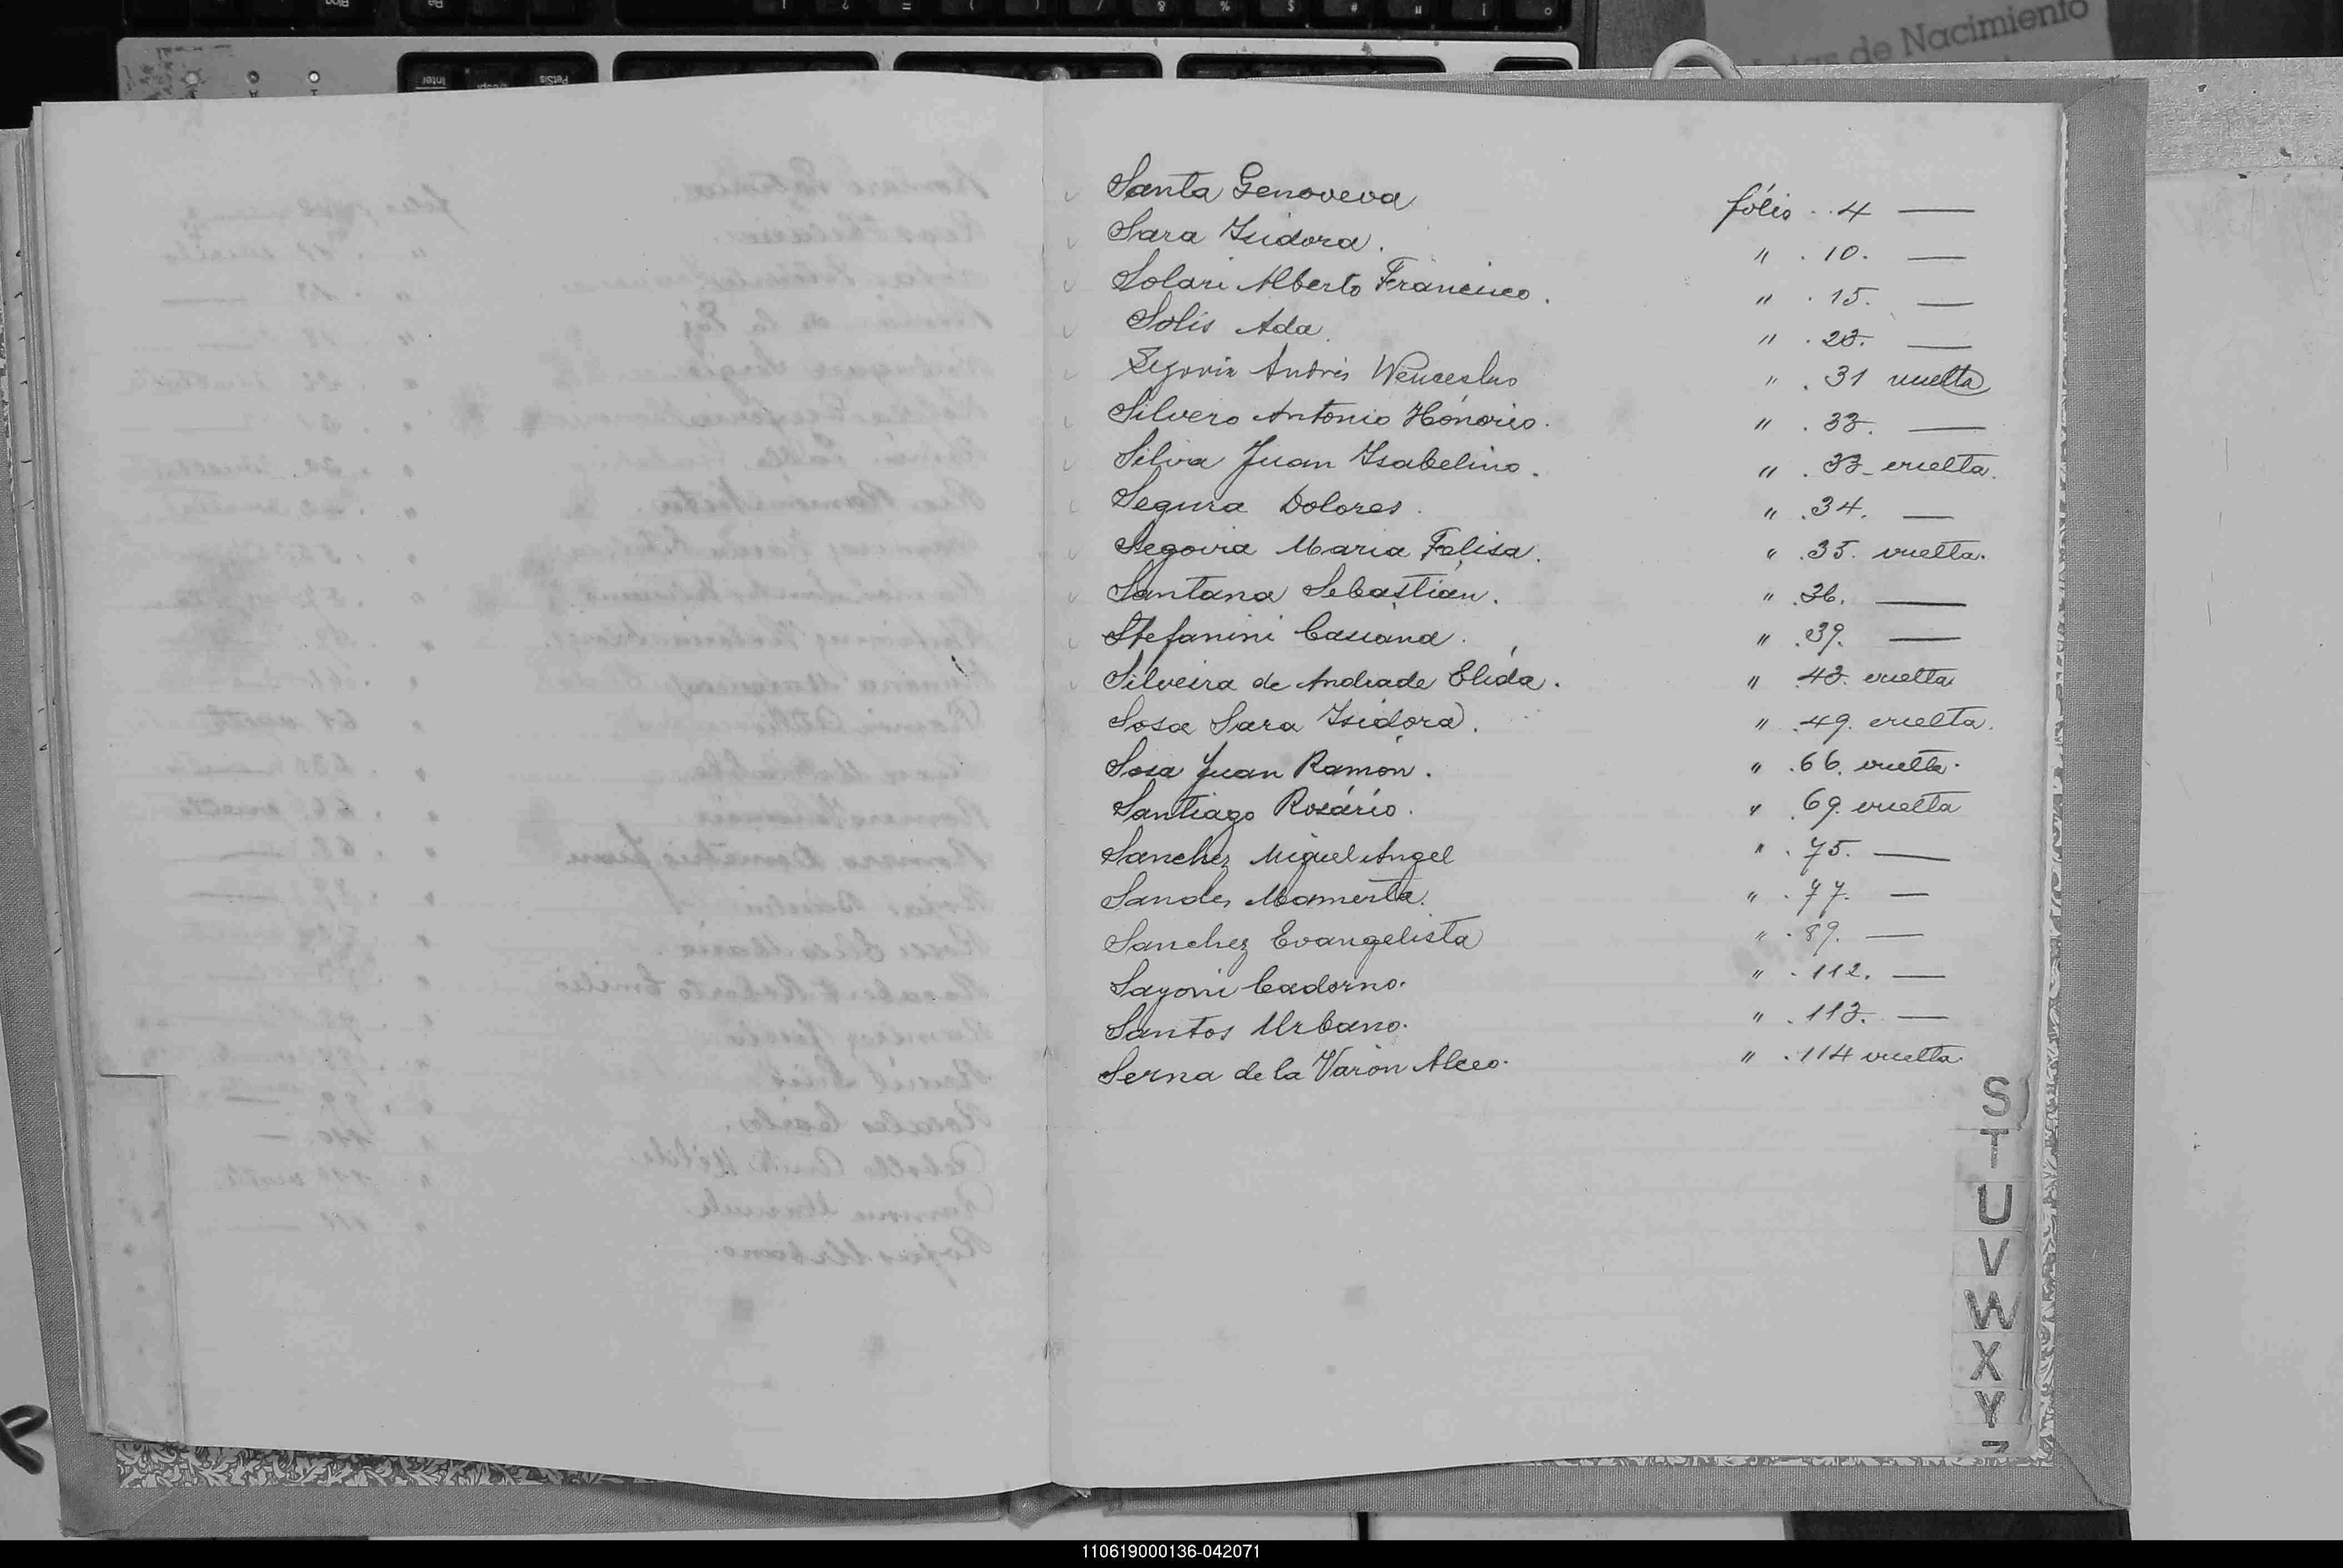 de Nacimiento
Santa Genoveva fólio . . 4 —
Sara Isidora . " . 10. —
Solari Alberto Francisco . " . 15. —
Solis Ada . " . 23. —
Segovia Andrés Wenceslao " . 31 vuelta
Silvero Antonio Hónório . " . 33. —
Silva Juan Isabelino . " . 33 - vuelta.
Segura Dolores . " . 34. —
Segovia Maria Felisa . " . 35. vuelta.
Santana Sebastián . " . 36. —
Stefanini Casiana . " . 39. —
Silveira de Andrade Elida . " . 43. vuelta
Sosa Sara Isidora . " . 49. vuelta.
Sosa Juan Ramón . " . 66. vuelta.
Santiago Rosário . " . 69. vuelta
Sanchez Miguel Angel " . 75. —
Sandes Mamerta. " . 77. —
Sanchez Evangelista " . 89. —
Sayoni Cadorno. " . 112. —
Santos Urbano. " . 113. —
Serna de la Varón Alceo. " . 114 vuelta.
S
T
U
V
W
X
Y
Z
110619000136-042071